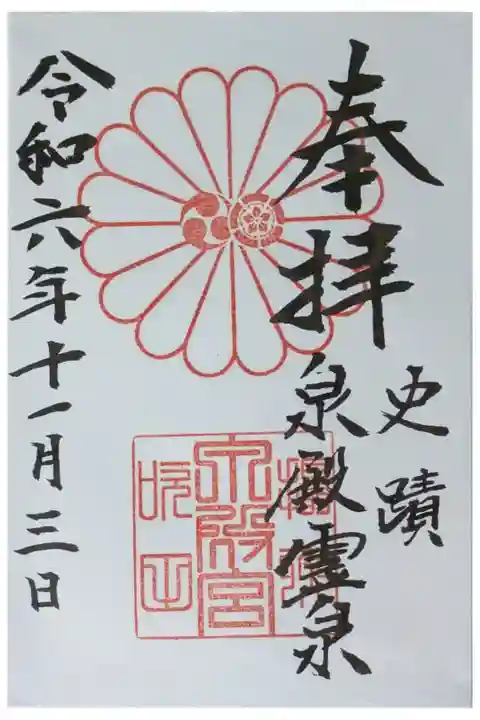 奉拝
史蹟
泉殿霊泉
令和六年十一月三日
泉殿宮